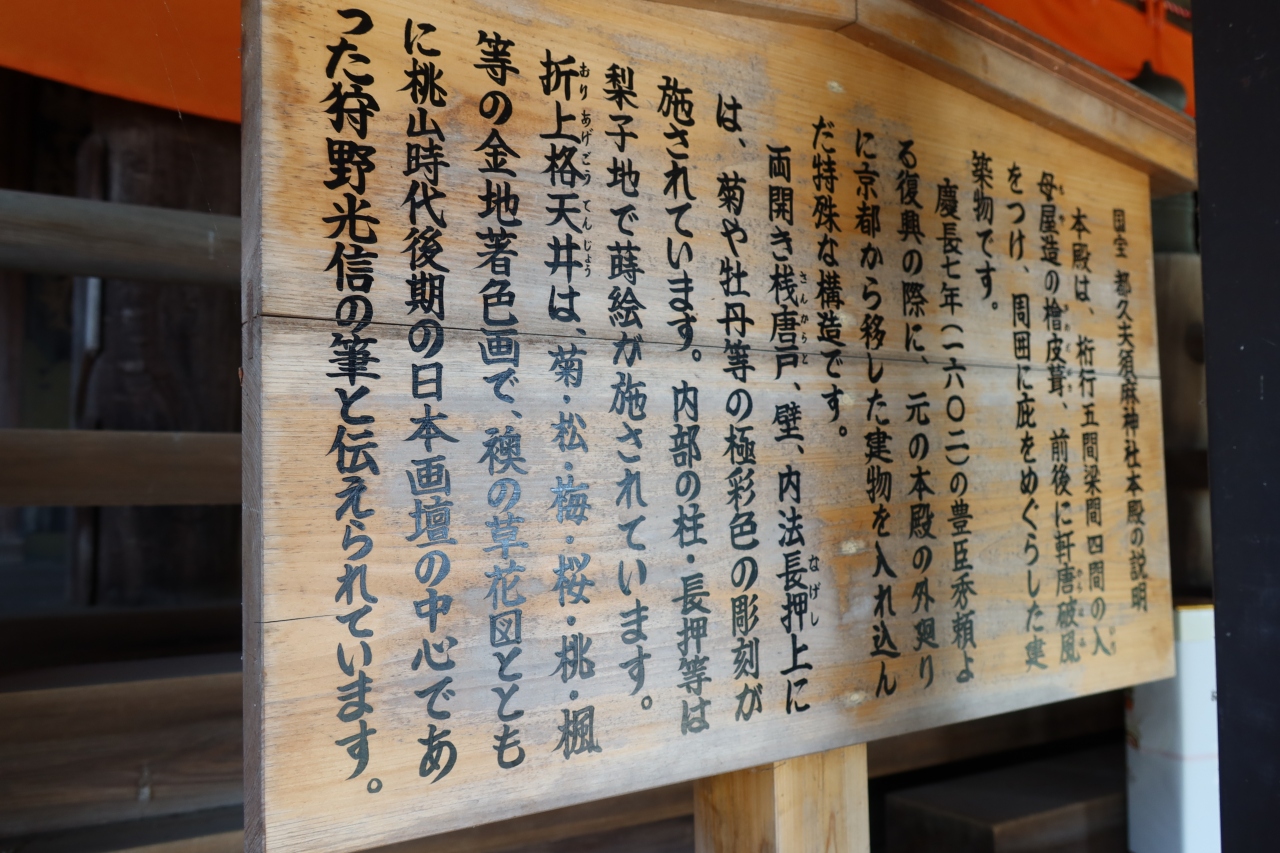 国宝 都久夫須麻神社本殿の説明
本殿は、桁行五間梁間四間の入
母屋造の檜皮葺、前後に軒唐破風
をつけ、周囲に庇をめぐらした建
築物です。
慶長七年(一六〇二)の豊臣秀頼よ
る復興の際に、元の本殿の外廻り
に京都から移した建物を入れ込ん
だ特殊な構造です。
両開き桟唐戸、壁、内法長押上に
は、菊や牡丹等の極彩色の彫刻が
施されています。内部の柱・長押等は
梨子地で蒔絵が施されています。
折上格天井は、菊・松・梅・桜・桃・楓
等の金地著色画で、襖の草花図ととも
に桃山時代後期の日本画壇の中心であ
った狩野光信の筆と伝えられています。
さんからと
なげし
おりあげごうてんじょう